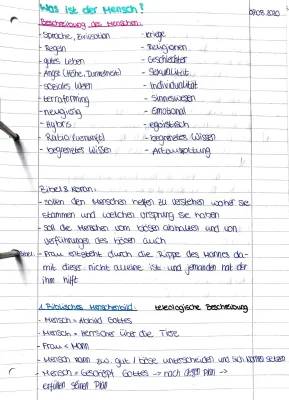 Was ist der Mensch?
Beschreibung des Menschen:
- Sprache, Zivilisation - Kriege
- Regeln - Religionen
- gutes Leben - Geschlechter
- Angst (Höhe, Dunkelheit) - Sexualität
- soziales Wesen - Individualität
- terraforming - Sinneswesen
- neugierig - Emotional
- Hybris - egoistisch
- Ratio (Vernunft) - begrenztes Wissen
- begrenztes Wissen - Artenspaltung
Bibel & Koran:
- sollen den Menschen helfen zu verstehen woher sie
stammen und welchen Ursprung sie haben
- soll die Menschen vom bösen abhalten und von
verführungen des bösen auch
- Frau entsteht durch die Rippe des Mannes da-
mit dieser nicht alleine ist und jemanden hat der
ihm hilft
1. Biblisches Menschenbild: teleologische Beschreibung
- Mensch = Abbild Gottes
- Mensch = Herrscher über die Tiere
- Frau < Mann
- Mensch kann zw. gut / böse unterscheiden und sich
- Mensch = Geschöpf Gottes → nach Plan →
erfüllen seinen Plan